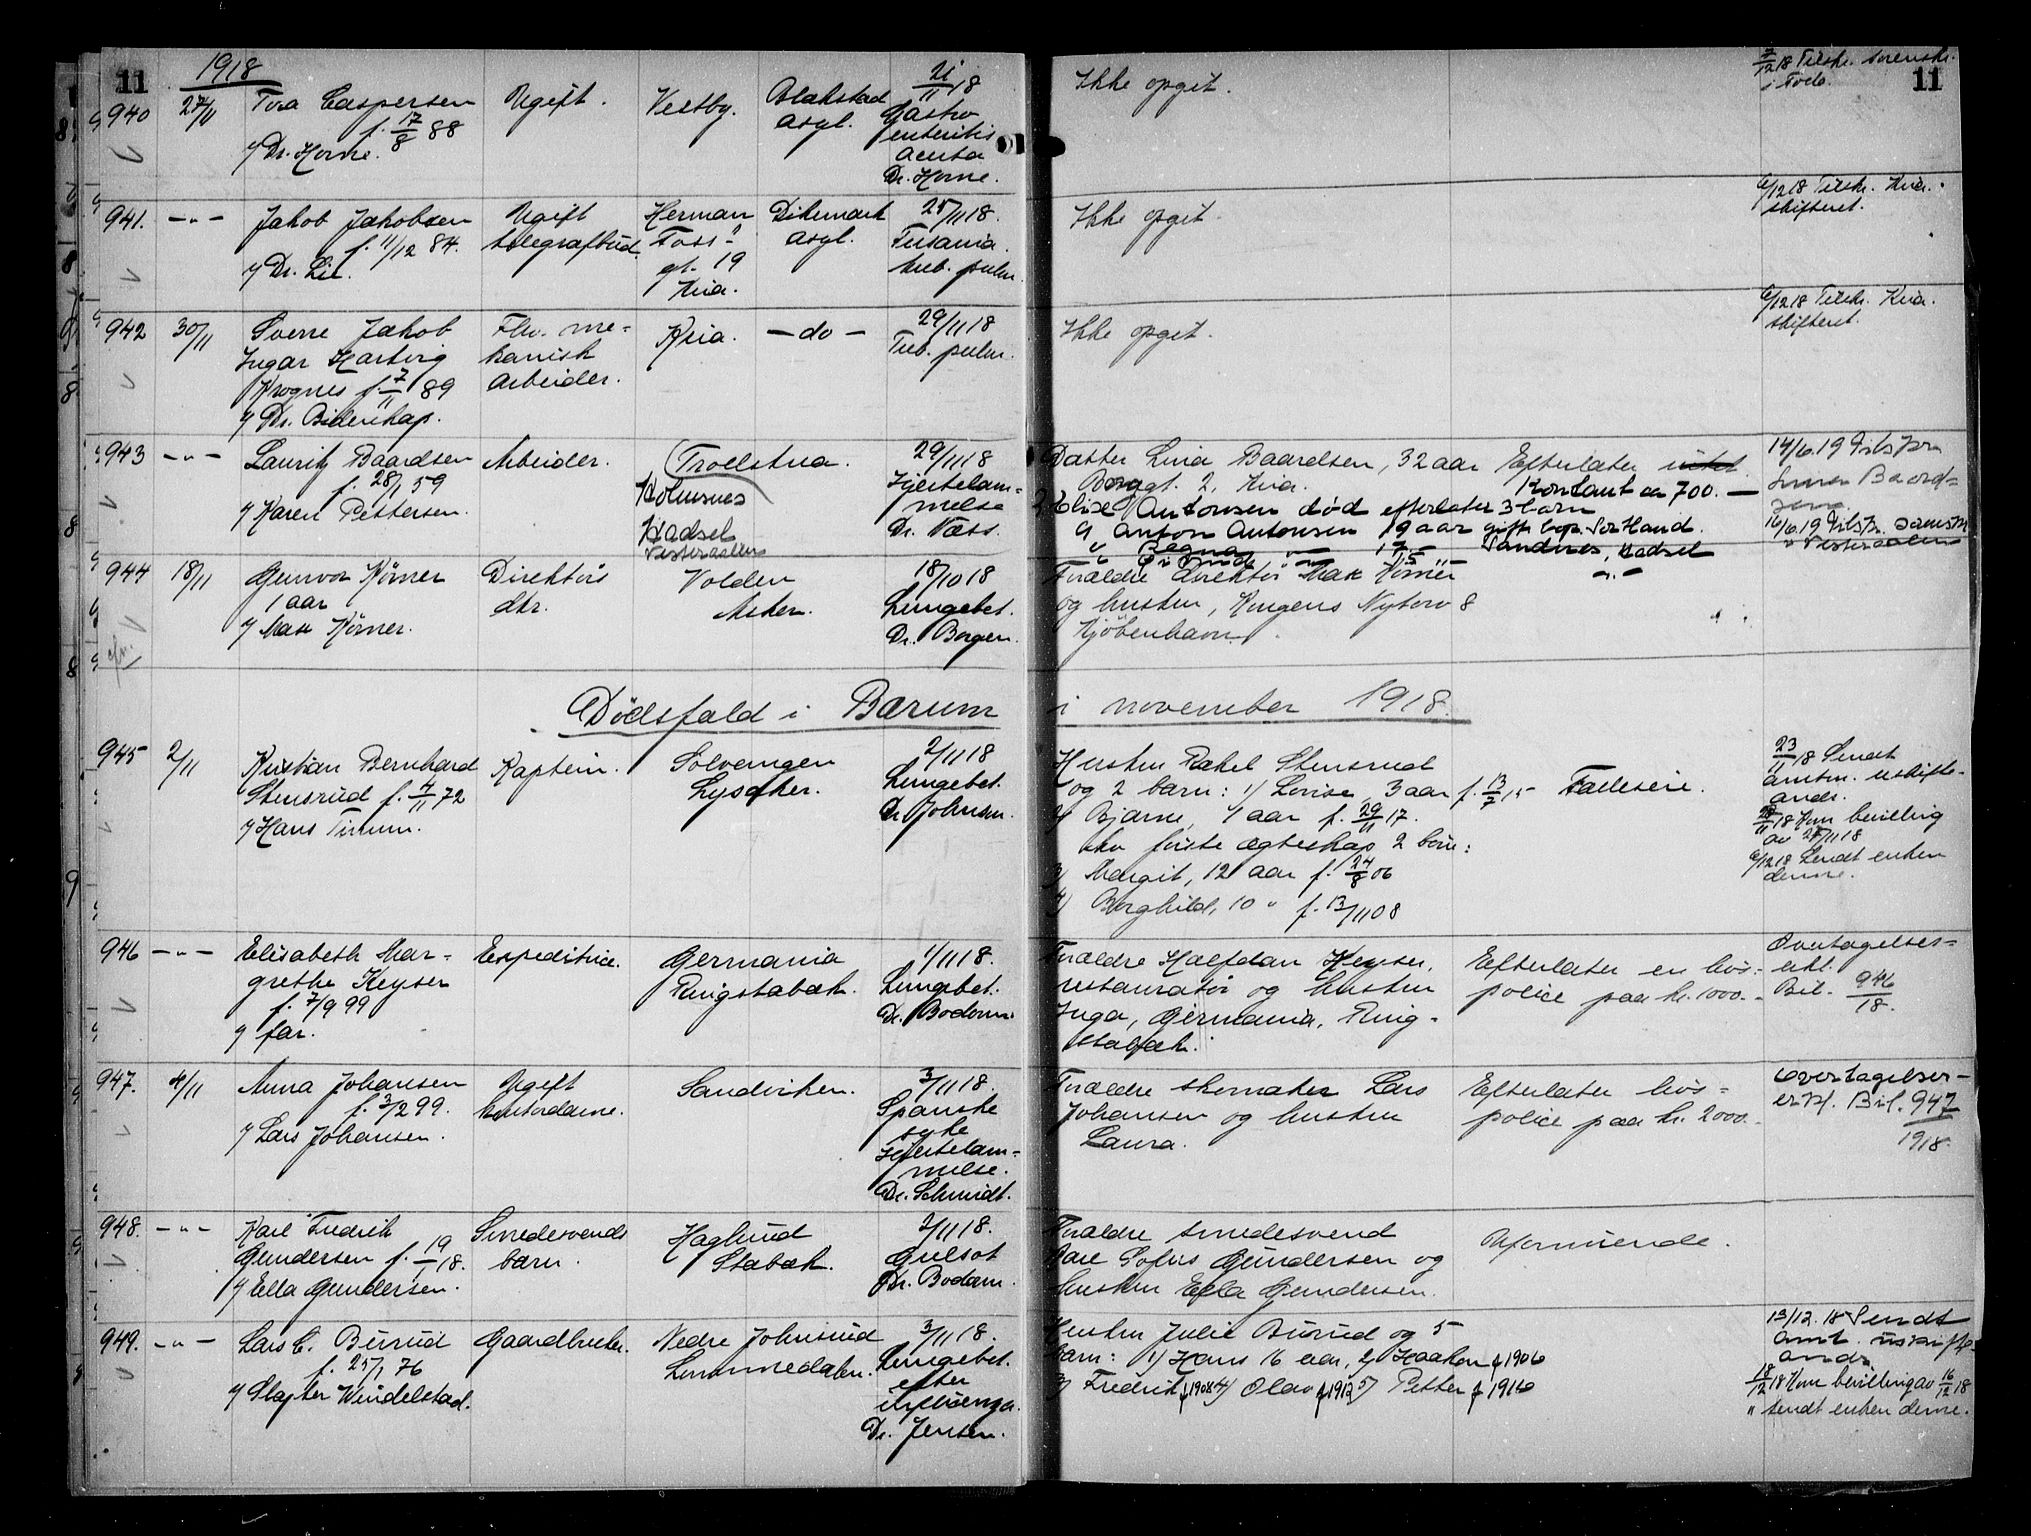 11
1918
940
27/11
Tora Caspersen
f. 17/8 88
v/ Dr. Horne.
Ugift.
Vestby.
Blakstad
asyl.
21/11 18
Gastro
enteritis
acuta
Dr. Horne.
Ikke opgit.
7/12 18 Tilskr. sorenskr.
i Follo.
11
941.
—„—
Jakob Jakobsen
f. 11/12 84.
v/ Dr. Lie.
Ugift
telegrafbud.
Herman
Foss"
gt. 19
Kria.
Dikemark
asyl.
25/11 18.
tub. pulm.
Ikke opgit.
6/12 18 Tilskr. Kria.
skifteret.
942
30/11
Sverre Jakob
Ingar Hartvig
Krognes f. 7/11 89
v/ Dr. Bidenkap.
Fhv. me-
kanisk
arbeider.
Kria.
—do—
29/11 18
Tub. pulm.
Ikke opgit.
6/12 18 Tilskr. Kria.
skifteret.
943
—„—
Lauritz Baardsen
f. 28/1 59
v/ Karen Pettersen.
Arbeider.
Troelstua.
Holmsnes
Hadsel
Vesteraalen
29/11 18
Hjertelam-
melse
Dr. Næss.
Datter Lina Baardsen, 32 aar
Borggt. 2, Kria.
Efterlater intet
Kontant ca 700.—
2 Elise Antonsen død efterlater 3 barn
a Anton Antonsen 19 aar gift bop. Sortland
" Ragna —„— 17 — Sandnes, Hadsel
14/6.19 Tilskr.
Lina Baard-
sen
16/6.19 Tilskr. sorenskr.
i Vesteraalen
944
18/11
Gunvor Körner
1 aar
v/ Max Körner.
Direktørs
dtr.
Volden
Asker.
18/10 18
Lungebet.
Dr. Borgen.
Forældre direktør Max Körner
og hustru, Kongens Nytorv 8
Kjøbenhavn.
Dødsfald i Bærum
i november 1918.
945
2/11
Kristian Bernhard
Stensrud f. 4/11 72
v/ Hans
Kaptein.
Solvangen
Lysaker.
2/11 18
Lungebet.
Dr. Johnsen.
Hustru Rakel Stensrud
og 2 barn: 1/ Lovise, 3 aar f. 13/7 15
2/ Bjarne, 1 aar f. 29/11 17.
av første ægteskap 2 barn:
3/ Margit, 12 aar f. 24/8 06
4/ Borghild, 10 " f. 13/11 08
Fælleseie.
23/11 18 Sendt
amtm. uskifte-
ands.
28/11 18 Kom bevilling
av 27/11 18
6/12 18 Sendt enken
denne.
946
—„—
Elisabeth Mar-
grethe Keyser
f. 7/9 99
v/ far.
Expeditrice.
Germania
Ringstabæk.
1/11 18.
Lungebet.
Dr. Bodom.
Forældre Halfdan Keyser,
restauratør og hustru
Inga, Germania, Ring-
stabæk.
Efterlater en livs-
police paa kr. 1000.-
Overtagelses-
erkl.
Bil. 946/18.
947.
4/11
Anna Johansen
f. 3/2 99.
v/ Lars Johansen.
Ugift
kontordame.
Sandviken.
3/11 18.
Spanske
syke
Hjertelam-
melse.
Dr. Schmidt.
Forældre skomaker Lars
Johansen og hustru
Laura.
Efterlater livs-
police paa kr. 2000.-
Overtagelses-
erkl. Bil. 947
1918.
948.
—„—
Karl Fredrik
Gundersen f. 19/1 18.
v/ Ella Gundersen.
Smedesvends
barn.
Haglund
Stabæk.
2/11 18.
Gulsot
Dr. Bodom.
Forældre smedesvend
Karl Sofus Gundersen og
hustru Ella Gundersen.
Uformuende.
949.
—„—
Lars C. Burud
f. 25/1 76
v/ Slagter Windelstad.
Gaardbruker.
Nedre Johnsrud
Lommedalen.
3/11 18.
Lungebet.
efter
influenza.
Dr. Jensen.
Hustru Julie Burud og 5
barn: 1/ Hans 16 aar, 2/ Haakon f 1906
3/ Fredrik f 1908 4/ Olav f 1912 5/ Petter f 1916
13/12. 18 Sendt
amt. uskifte
ands.
18/12 18 Kom bevilling av 16/12 18
" sendt enken denne.